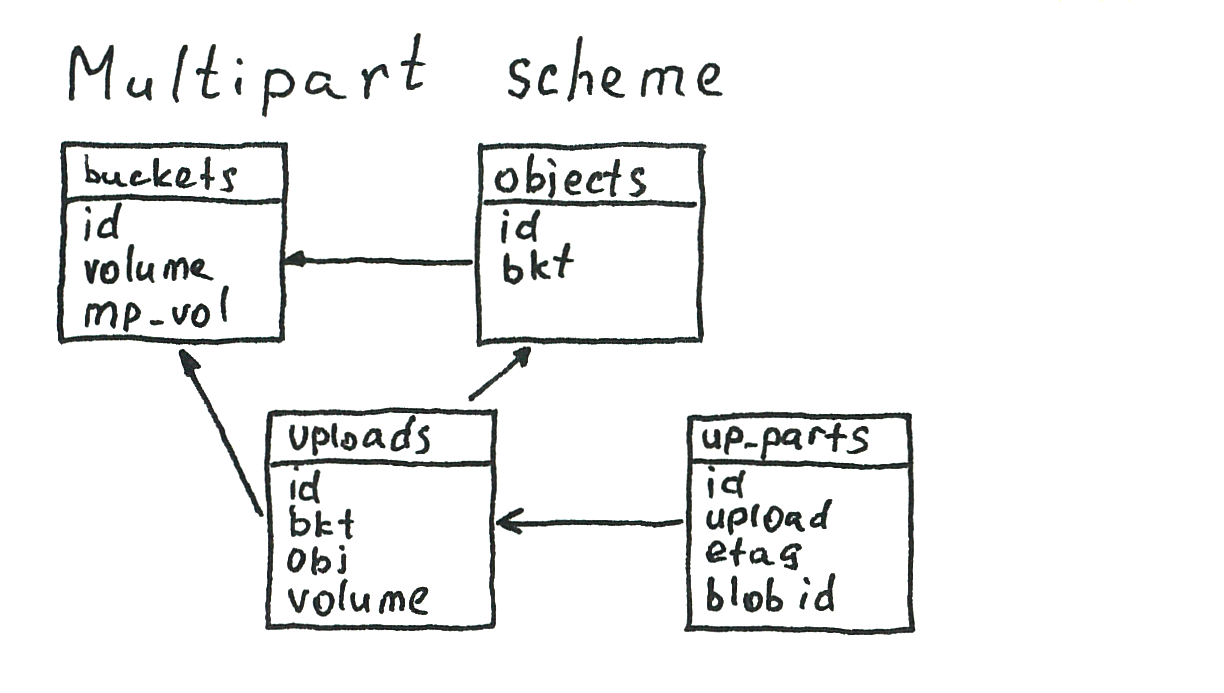 Multipart scheme
buckets
id
volume
mp_vol
objects
id
bkt
uploads
id
bkt
obj
volume
up_parts
id
upload
etag
blob id